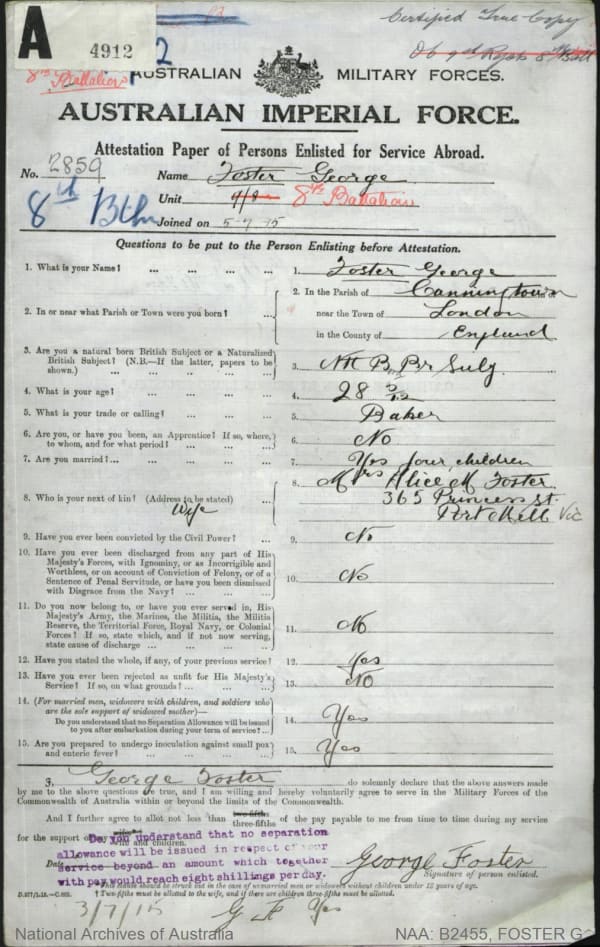 A
4912
2
Certified True Copy
8th Battalion
AUSTRALIAN MILITARY FORCES.
AUSTRALIAN IMPERIAL FORCE.
Attestation Paper of Persons Enlisted for Service Abroad.
No. 2859 Name Foster George
8th Btn Unit 9/8 8th Battalion
Joined on 5-7-15
Questions to be put to the Person Enlisting before Attestation.
1. What is your Name? ... ... ... ... 1. Foster George
2. In or near what Parish or Town were you born? ... 2. In the Parish of Canningtown
near the Town of London
in the County of England
3. Are you a natural born British Subject or a Naturalized British Subject? (N.B.—If the latter, papers to be shown.) ... ... ... ... 3. Nt B. Br Subj
4. What is your age? ... ... ... ... 4. 28
5. What is your trade or calling? ... ... ... 5. Baker
6. Are you, or have you been, an Apprentice? If so, where, to whom, and for what period? ... ... ... 6. No
7. Are you married?... ... ... ... ... 7. Yes four children
8. Who is your next of kin? (Address to be stated) 8. Mrs Alice M Foster
Wife 365 Princess St.
Port Melb Vic
9. Have you ever been convicted by the Civil Power? ... 9. No
10. Have you ever been discharged from any part of His Majesty's Forces, with Ignominy, or as Incorrigible and Worthless, or on account of Conviction of Felony, or of a Sentence of Penal Servitude, or have you been dismissed with Disgrace from the Navy? ... ... ... 10. No
11. Do you now belong to, or have you ever served in, His Majesty's Army, the Marines, the Militia, the Militia Reserve, the Territorial Force, Royal Navy, or Colonial Forces? If so, state which, and if not now serving, state cause of discharge ... ... ... ... 11. No
12. Have you stated the whole, if any, of your previous service? 12. Yes
13. Have you ever been rejected as unfit for His Majesty's Service? If so, on what grounds? ... ... ... 13. No
14. (For married men, widowers with children, and soldiers who are the sole support of widowed mother)—
Do you understand that no Separation Allowance will be issued to you after embarkation during your term of service? ... 14. Yes
15. Are you prepared to undergo inoculation against small pox and enteric fever? ... ... ... ... 15. Yes
I, George Foster do solemnly declare that the above answers made
by me to the above questions are true, and I am willing and hereby voluntarily agree to serve in the Military Forces of the
Commonwealth of Australia within or beyond the limits of the Commonwealth.
And I further agree to allot not less than two-fifths three-fifths of the pay payable to me from time to time during my service
for the support of my wife and children.
Do you understand that no separation
allowance will be issued in respect of your
service beyond an amount which together
with pay would reach eight shillings per day.
Date
George Foster
Signature of person enlisted.
This clause should be struck out in the case of unmarried men or widowers without children under 18 years of age.
† Two-fifths must be allotted to the wife, and if there are children three-fifths must be allotted.
3/7/15 G F Yes
National Archives of Australia NAA: B2455, FOSTER G